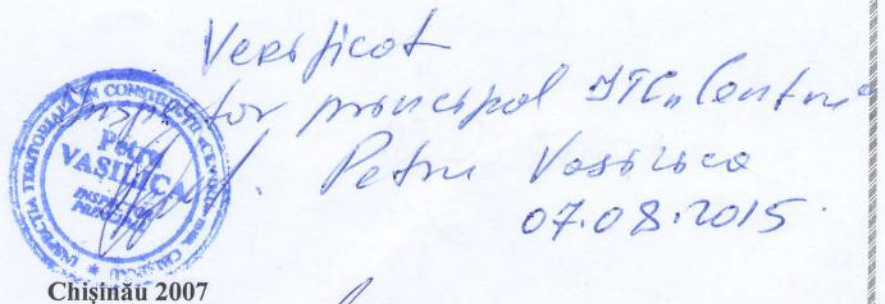 Verificat
Inspector principal ITC „Centru"
Petru Vasilica
07.08.2015.
INSPECȚIA TERITORIALĂ ÎN CONSTRUCȚII «CENTRU» MUN. CHIȘINĂU
Petru
VASILICA
INSPECTOR
PRINCIPAL
Chișinău 2007